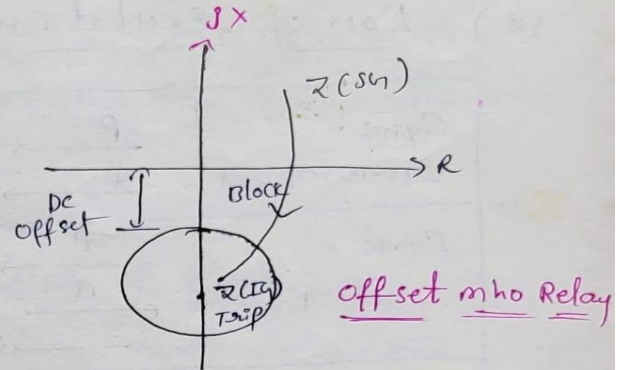 jX
Z(SG)
R
DC
Offset
Block
Z(IG)
Trip
Offset mho Relay